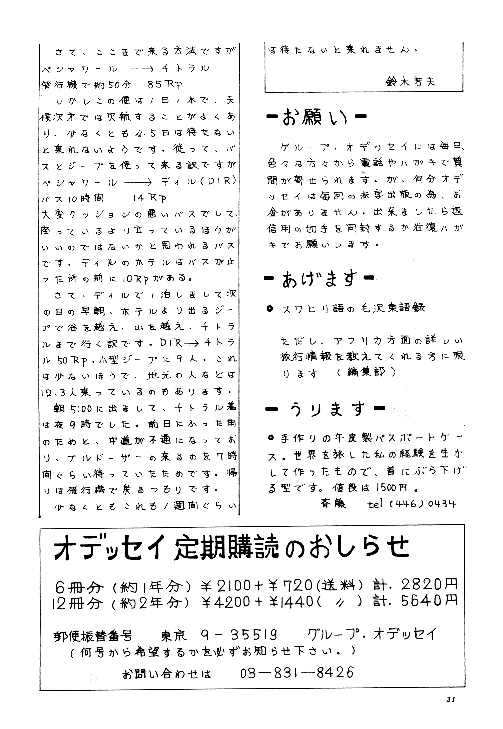 さて、ここまで来る方法ですが
ペシャワール ──→ チトラル
飛行機で約50分 85Rp
しかしこの便は1日1本で、天
候次第では欠航することがよくあ
り、少なくとも4.5日は待てない
と乗れないようです。従って、バ
スとジープを使って来る訳ですが
ペシャワール ──→ ディル(DIR)
バス10時間 14Rp
大変クッションの悪いバスでして、
座っているより立っているほうが
いいのではないかと思われるバス
です。ディルのホテルはバスが止
った所の前に10Rpがある。
さて、ディルで1泊しまして次
の日の早朝、ホテルより出るジー
プで谷を越え、山を越え、チトラ
ルまで行く訳です。DIR→チトラ
ル50Rp、小型ジープに9人、これ
は少ないほうで、地元の人などは
12.3人乗っているのもあります。
朝5:00に出まして、チトラル着
は夜9時でした。前日にふった雨
のためと、車道が不通になってお
り、ブルドーザーの来るのを7時
間ぐらい待っていたためです。帰
りは飛行機で戻るつもりです。
少なくともこれも1週間ぐらい
は待たないと乗れません。
鈴木芳夫
ーお願いー
グループ・オデッセイには毎日、
色々な方々から電話やハガキで質
問が寄せられます。が、何分オデ
ッセイは毎回の赤字出版の為、お
金がありません。出来ましたら返
信用の切手を同封するか往復ハガ
キでお願いします。
ーあげますー
● スワヒリ語の毛沢東語録
ただし、アフリカ方面の詳しい
旅行情報を教えてくれる方に限
ります (編集部)
ーうりますー
● 手作りの牛皮製パスポートケー
ス。世界を旅した私の経験を生か
して作ったもので、首にぶら下げ
る型です。値段は1500円。
斉藤 tel (446) 0434
オデッセイ定期購読のおしらせ
6冊分(約1年分)¥2100+¥720(送料)計.2820円
12冊分(約2年分)¥4200+¥1440( 〃 )計.5640円
郵便振替番号 東京 9-35519 グループ・オデッセイ
(何号から希望するかを必ずお知らせ下さい。)
お問い合わせは 03-831-8426
31